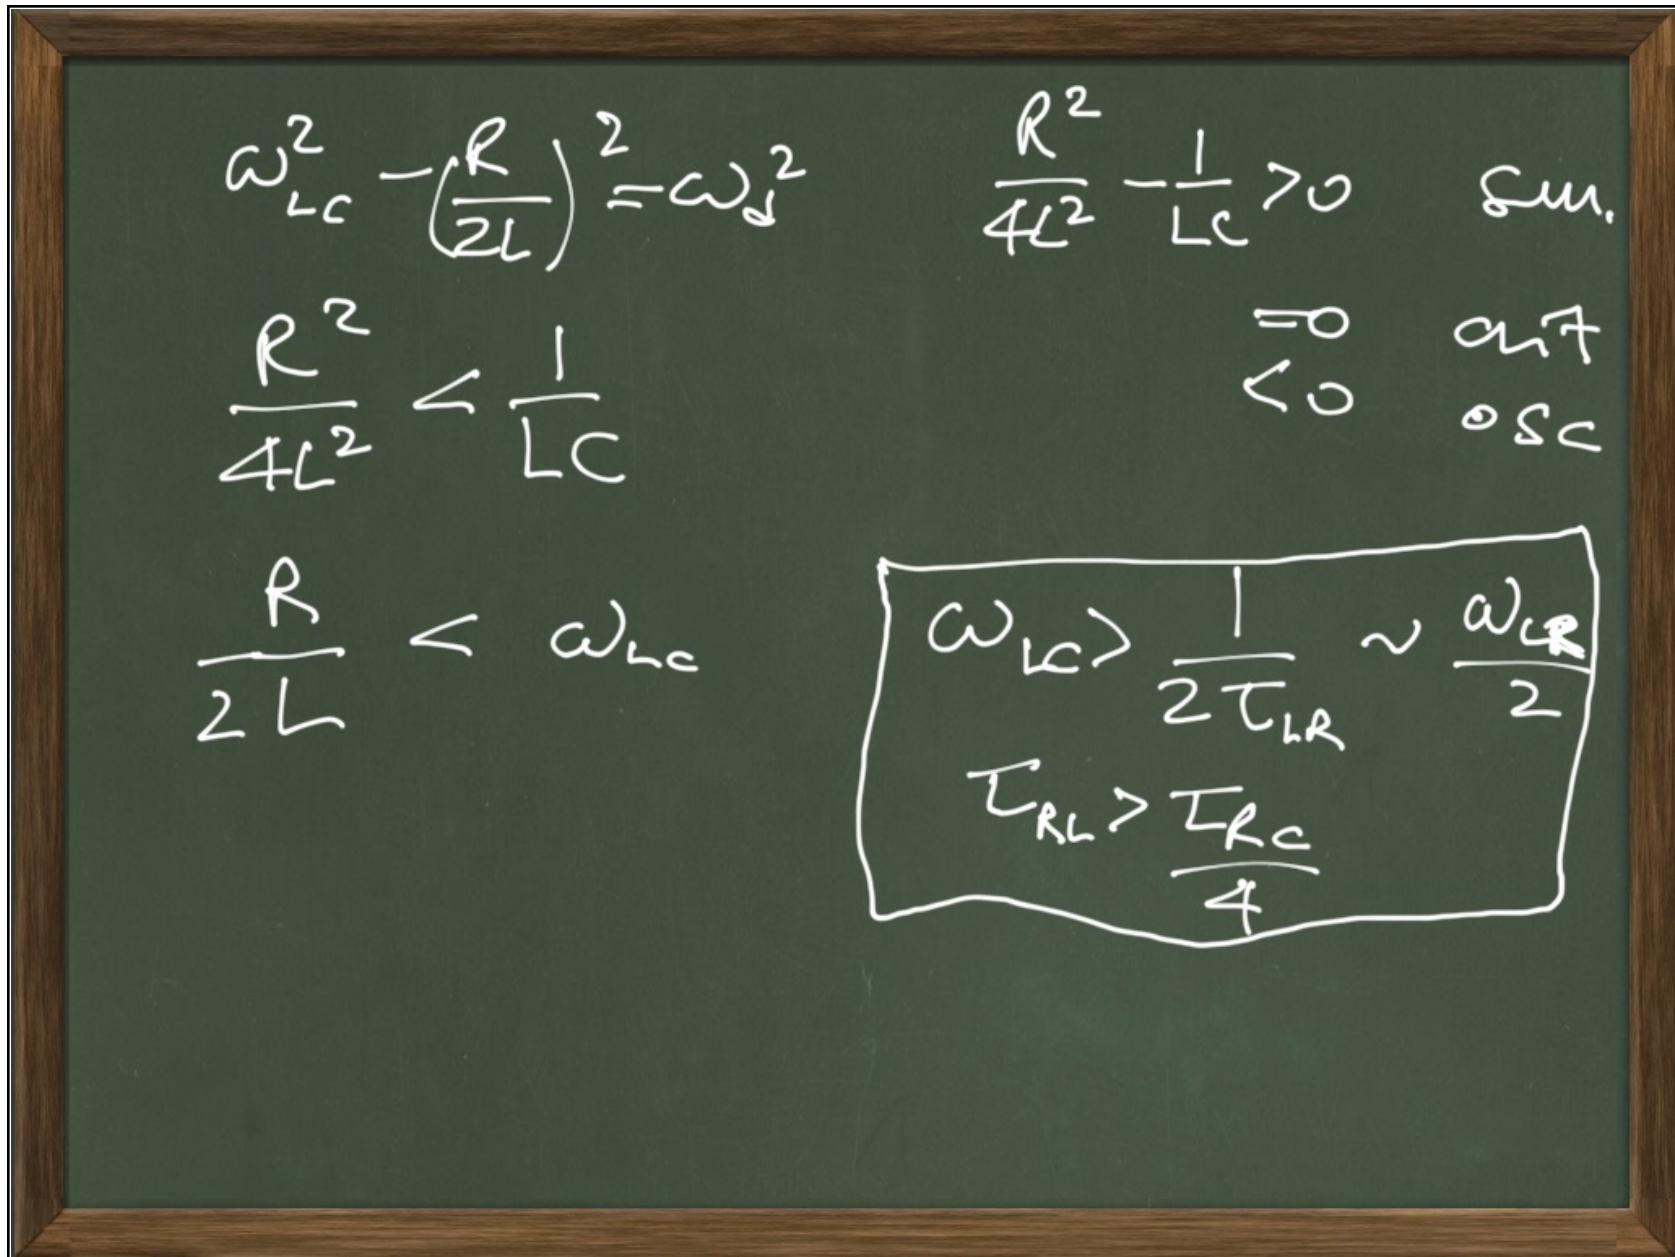 ω²_LC − (R/2L)² = ω_d²
R²/4L² < 1/LC
R/2L < ω_LC
R²/4L² − 1/LC > 0
= 0 crit
< 0 osc
ω_LC > 1/2τ_LR ~ ω_LR/2
τ_RL > τ_RC/4